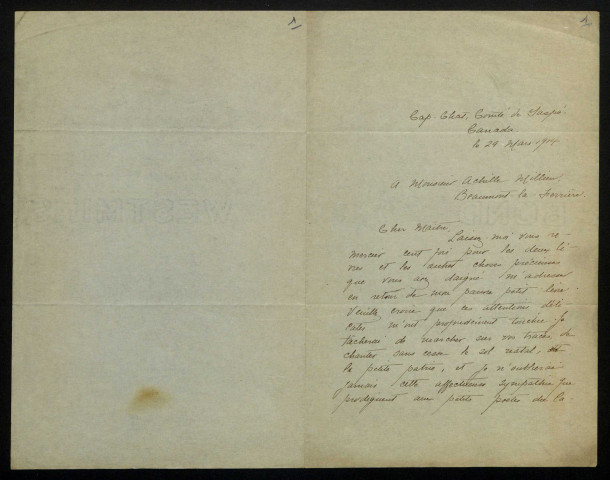 1
1
Cap-Chat, Comté de Gaspé
Canada
le 24 Mars 1904
A Monsieur Achille Millien
Beaumont-la-Ferrière
Cher Maître
Laissez-moi vous re-
mercier cent fois pour les deux li-
vres et les autres choses précieuses
que vous avez daigné m'adresser
en retour de mon pauvre petit livre.
Veuillez croire que ces attentions déli-
cates m'ont profondément touché. Je
tâcherai de marcher sur vos traces, de
chanter sans cesse le sol natal,
la petite patrie, et je n'oublierai
jamais cette affectueuse sympathie que
prodiguent aux petits poètes du Ca-